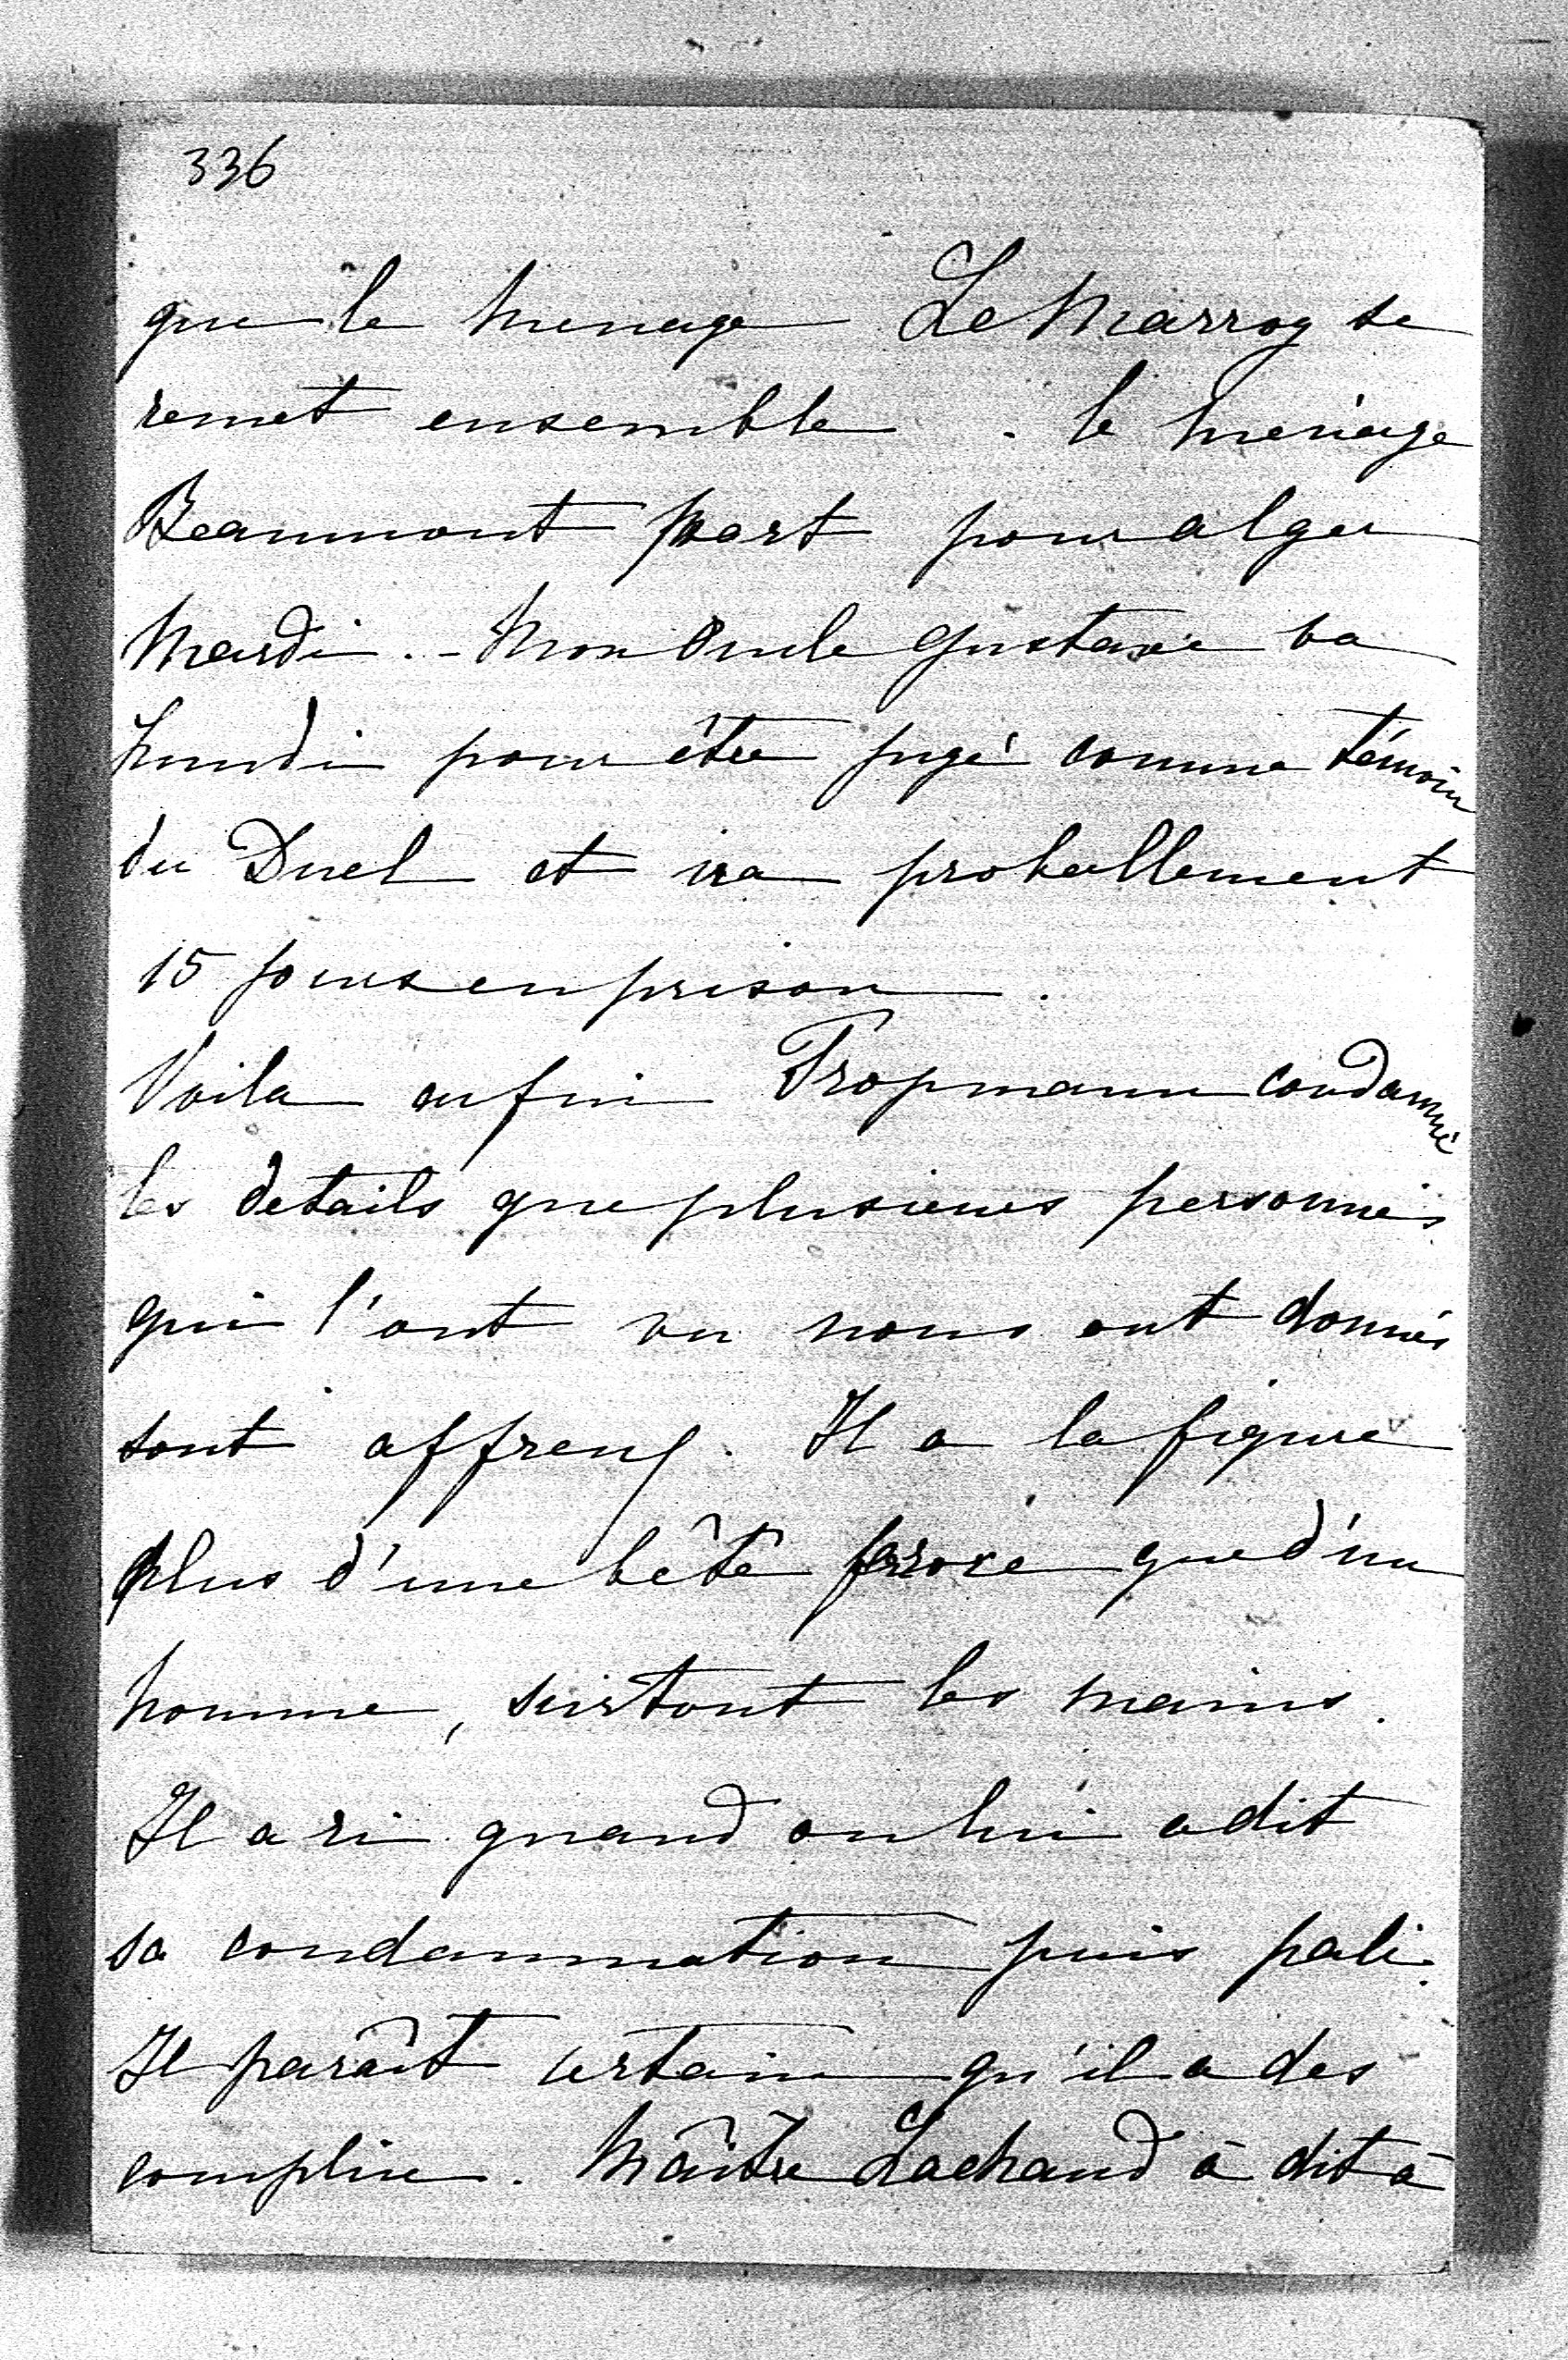 336
que le menage Le Marroy se
remet ensemble . le ménage
Beaumont part pour alger
Mardi . - Mon Oncle Gustave va
lundi pour être jugé comme témoin
du Duel et ira proballement
15 jours en prison .
Voila enfin Tropmann condamné
les details que plusieurs personnes
qui l'ont vu nous ont donnés
sont affreux . Il a la figure
plus d'une bête feroce que d'un
homme , surtout les mains .
Il a ri quand on lui a dit
sa condamnation puis pali .
Il paraît certain qu'il a des
complices . Maître Lachaud à dit à